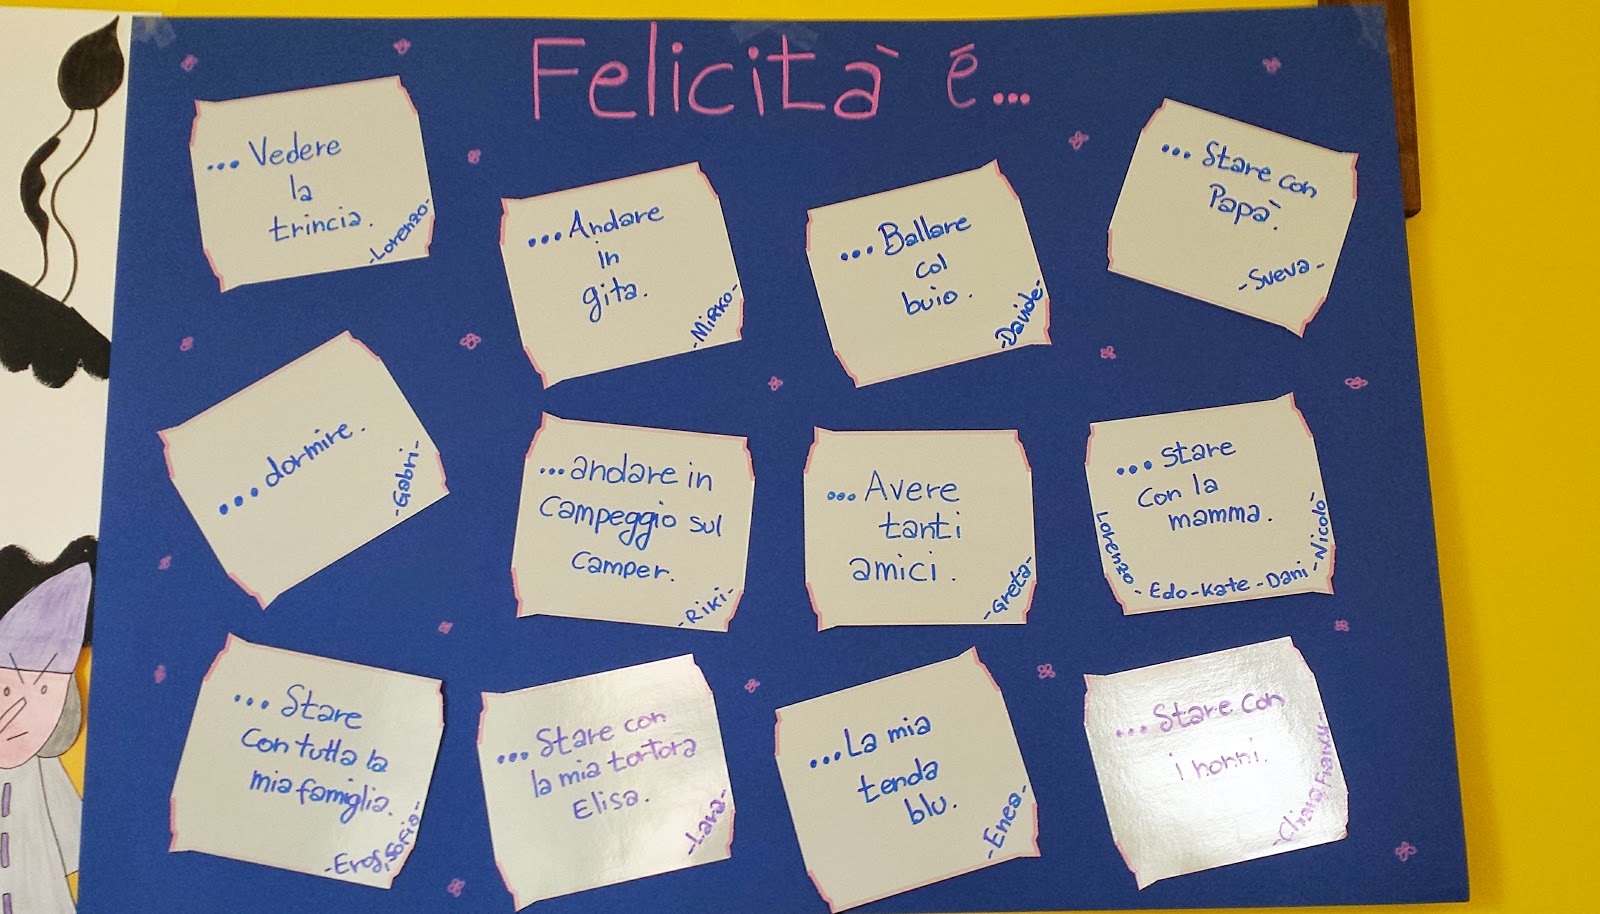 Felicità è...
... Vedere
la
trincia.
-Lorenzo-
... Andare
in
gita.
-Mirko-
... Ballare
col
buio.
-Davide-
... Stare con
Papà.
-Sveva-
... dormire.
-Gabri-
... andare in
campeggio sul
camper.
-Riki-
... Avere
tanti
amici.
-Greta-
... stare
con la
mamma.
Lorenzo - Edo - Kate - Dani - Nicolò -
... Stare
con tutta la
mia famiglia.
-Eros, Sofia-
... Stare con
la mia tortora
Elisa.
-Lara-
... La mia
tenda
blu.
-Enea-
... Stare con
i nonni.
-Chiara, Francy-